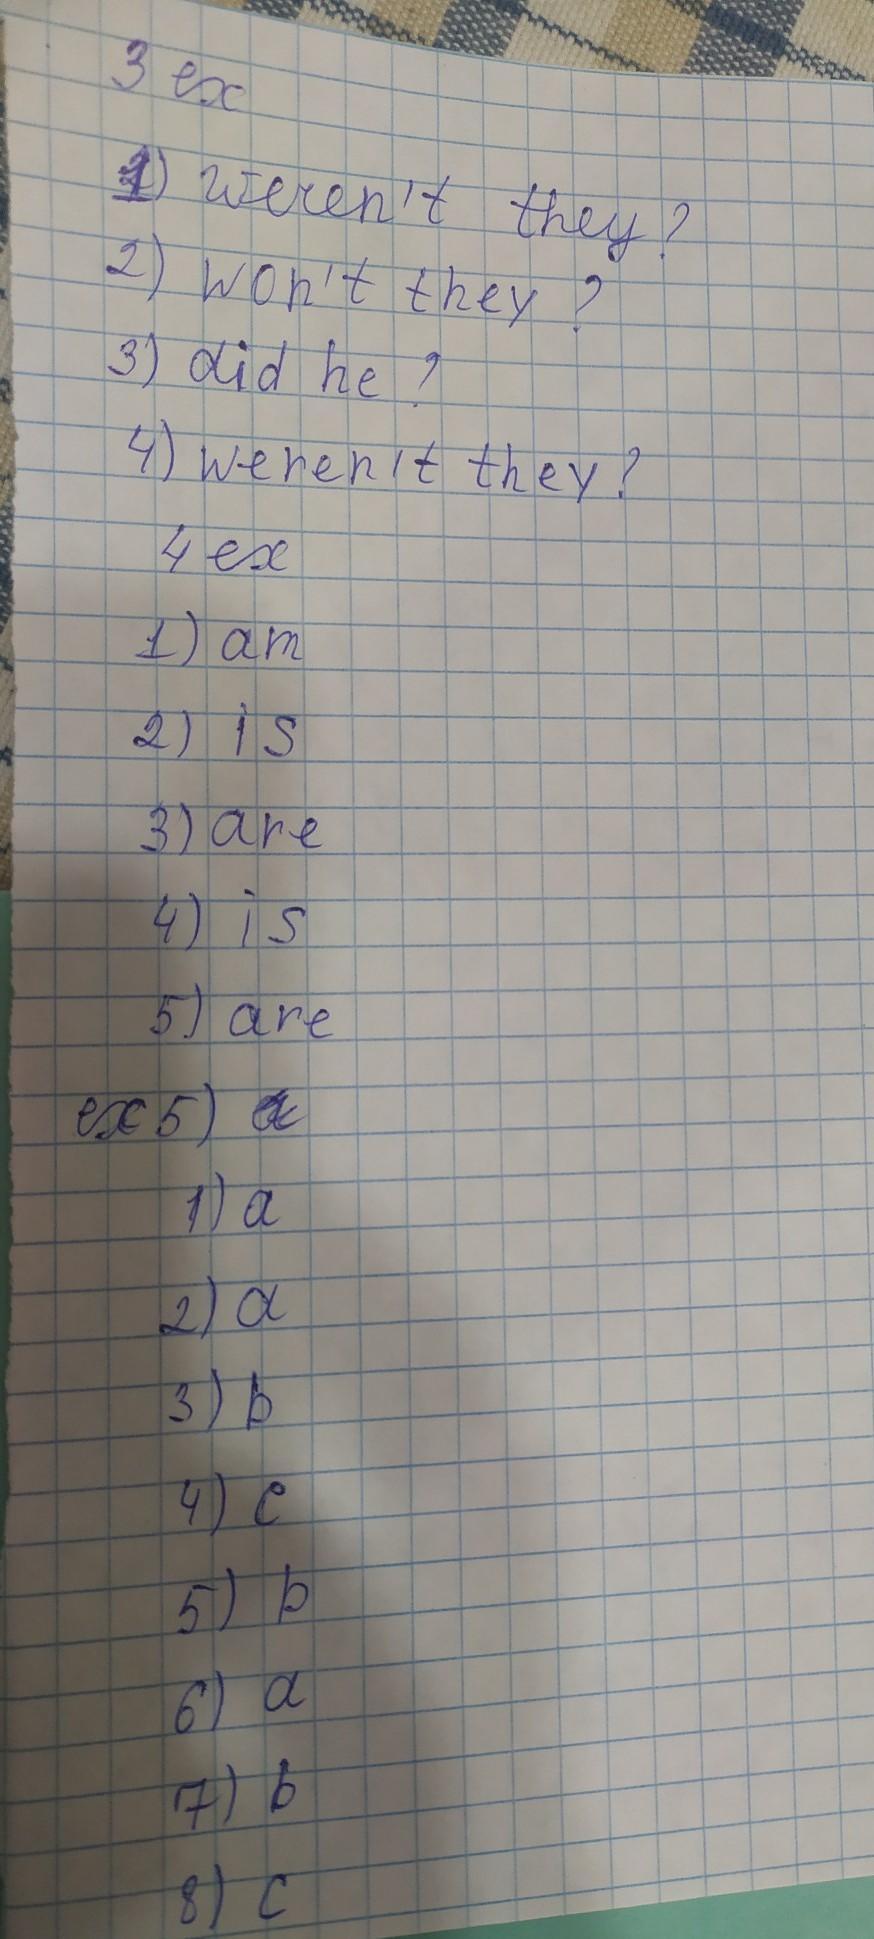 3 ex
1) weren't they?
2) won't they?
3) did he?
4) weren't they?
4 ex
1) am
2) is
3) are
4) is
5) are
ex 5) a
1) a
2) a
3) b
4) c
5) b
6) a
7) b
8) c